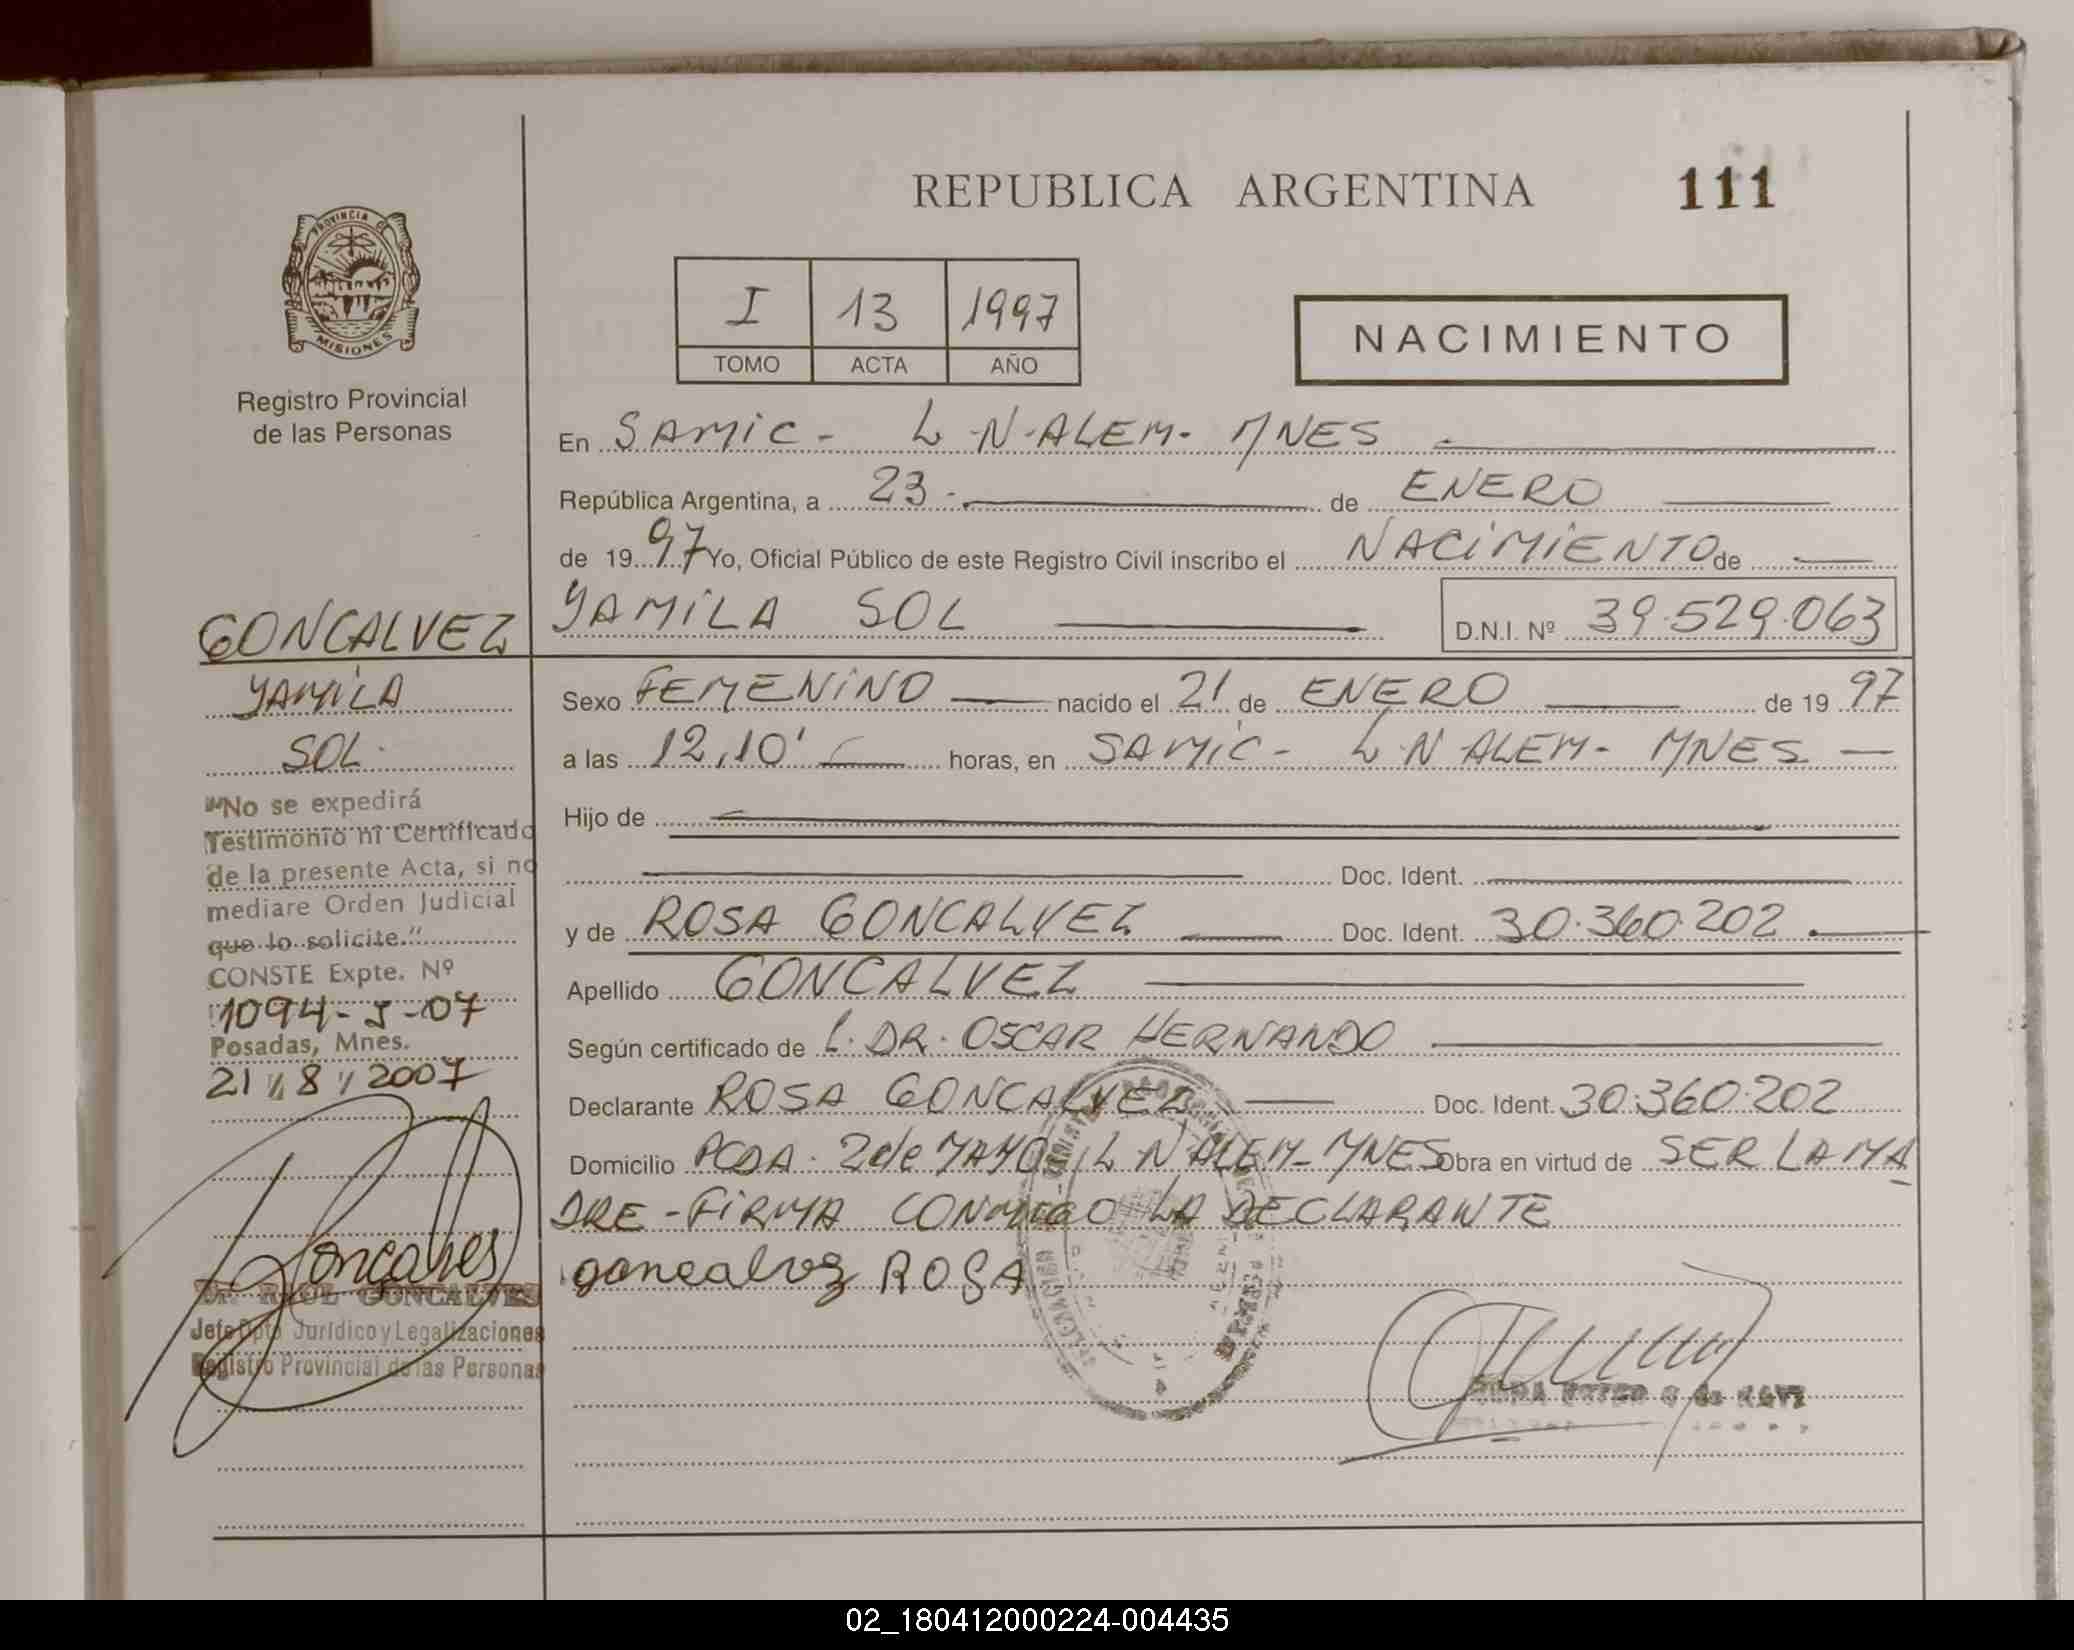 REPUBLICA ARGENTINA
111
PROVINCIA DE
MISIONES
Registro Provincial
de las Personas
I 13 1997
TOMO ACTA AÑO
NACIMIENTO
En SAMIC - L-N-ALEM- MNES
República Argentina, a 23 - de ENERO
de 1997 Yo, Oficial Público de este Registro Civil inscribo el NACIMIENTO de
YAMILA SOL D.N.I. Nº 39.529.063
Sexo FEMENINO nacido el 21 de ENERO de 1997
a las 12,10' horas, en SAMIC - L N ALEM - MNES
Hijo de
Doc. Ident.
y de ROSA GONCALVEZ Doc. Ident. 30.360.202
Apellido GONCALVEZ
Según certificado de DR. OSCAR HERNANDO
Declarante ROSA GONCALVEZ Doc. Ident. 30.360.202
Domicilio PCDA. 2 de MAYO L N ALEM - MNES Obra en virtud de SER LA MA
DRE - FIRMA CONMIGO LA DECLARANTE
goncalvez ROSA
GONCALVEZ
YAMILA
SOL
"No se expedirá
Testimonio ni Certificado
de la presente Acta, si no
mediare Orden Judicial
que lo solicite."
CONSTE Expte. Nº
1094-J-07
Posadas, Mnes.
21/8/2007
Goncalves
Dr. RAUL GONCALVES
Jefe Dpto Jurídico y Legalizaciones
Registro Provincial de las Personas
02_180412000224-004435